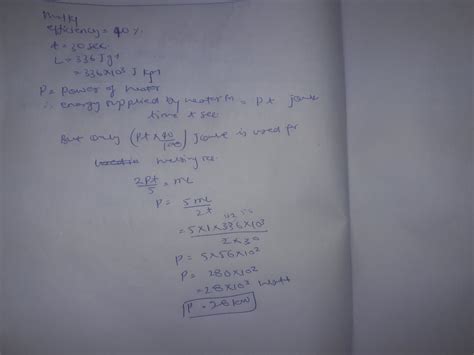 m = 1 kg
efficiency = 40%
t = 30 sec
L = 336 J g-1
= 336 × 10³ J kg-1
P = Power of heater
∴ energy supplied by heater in = Pt joule
time t sec
But only (Pt × 40/100) joule is used for
melting ice
2Pt/5 = mL
P = 5mL/2t
= 5×1×336×10³/2×30
P = 5×56×10³
P = 280×10²
= 28×10³ watt
P = 28 kW